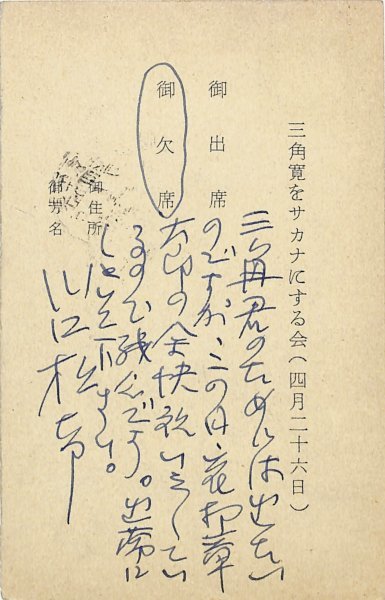 三角寛をサカナにする会(四月二十六日)
御出席
御欠席
御住所
御芳名
三角君のためには出たい
のですが、この日、花柳章
太郎の全快祝いをしてい
るので残念です。出席に
しといて下さい。
川口松太郎